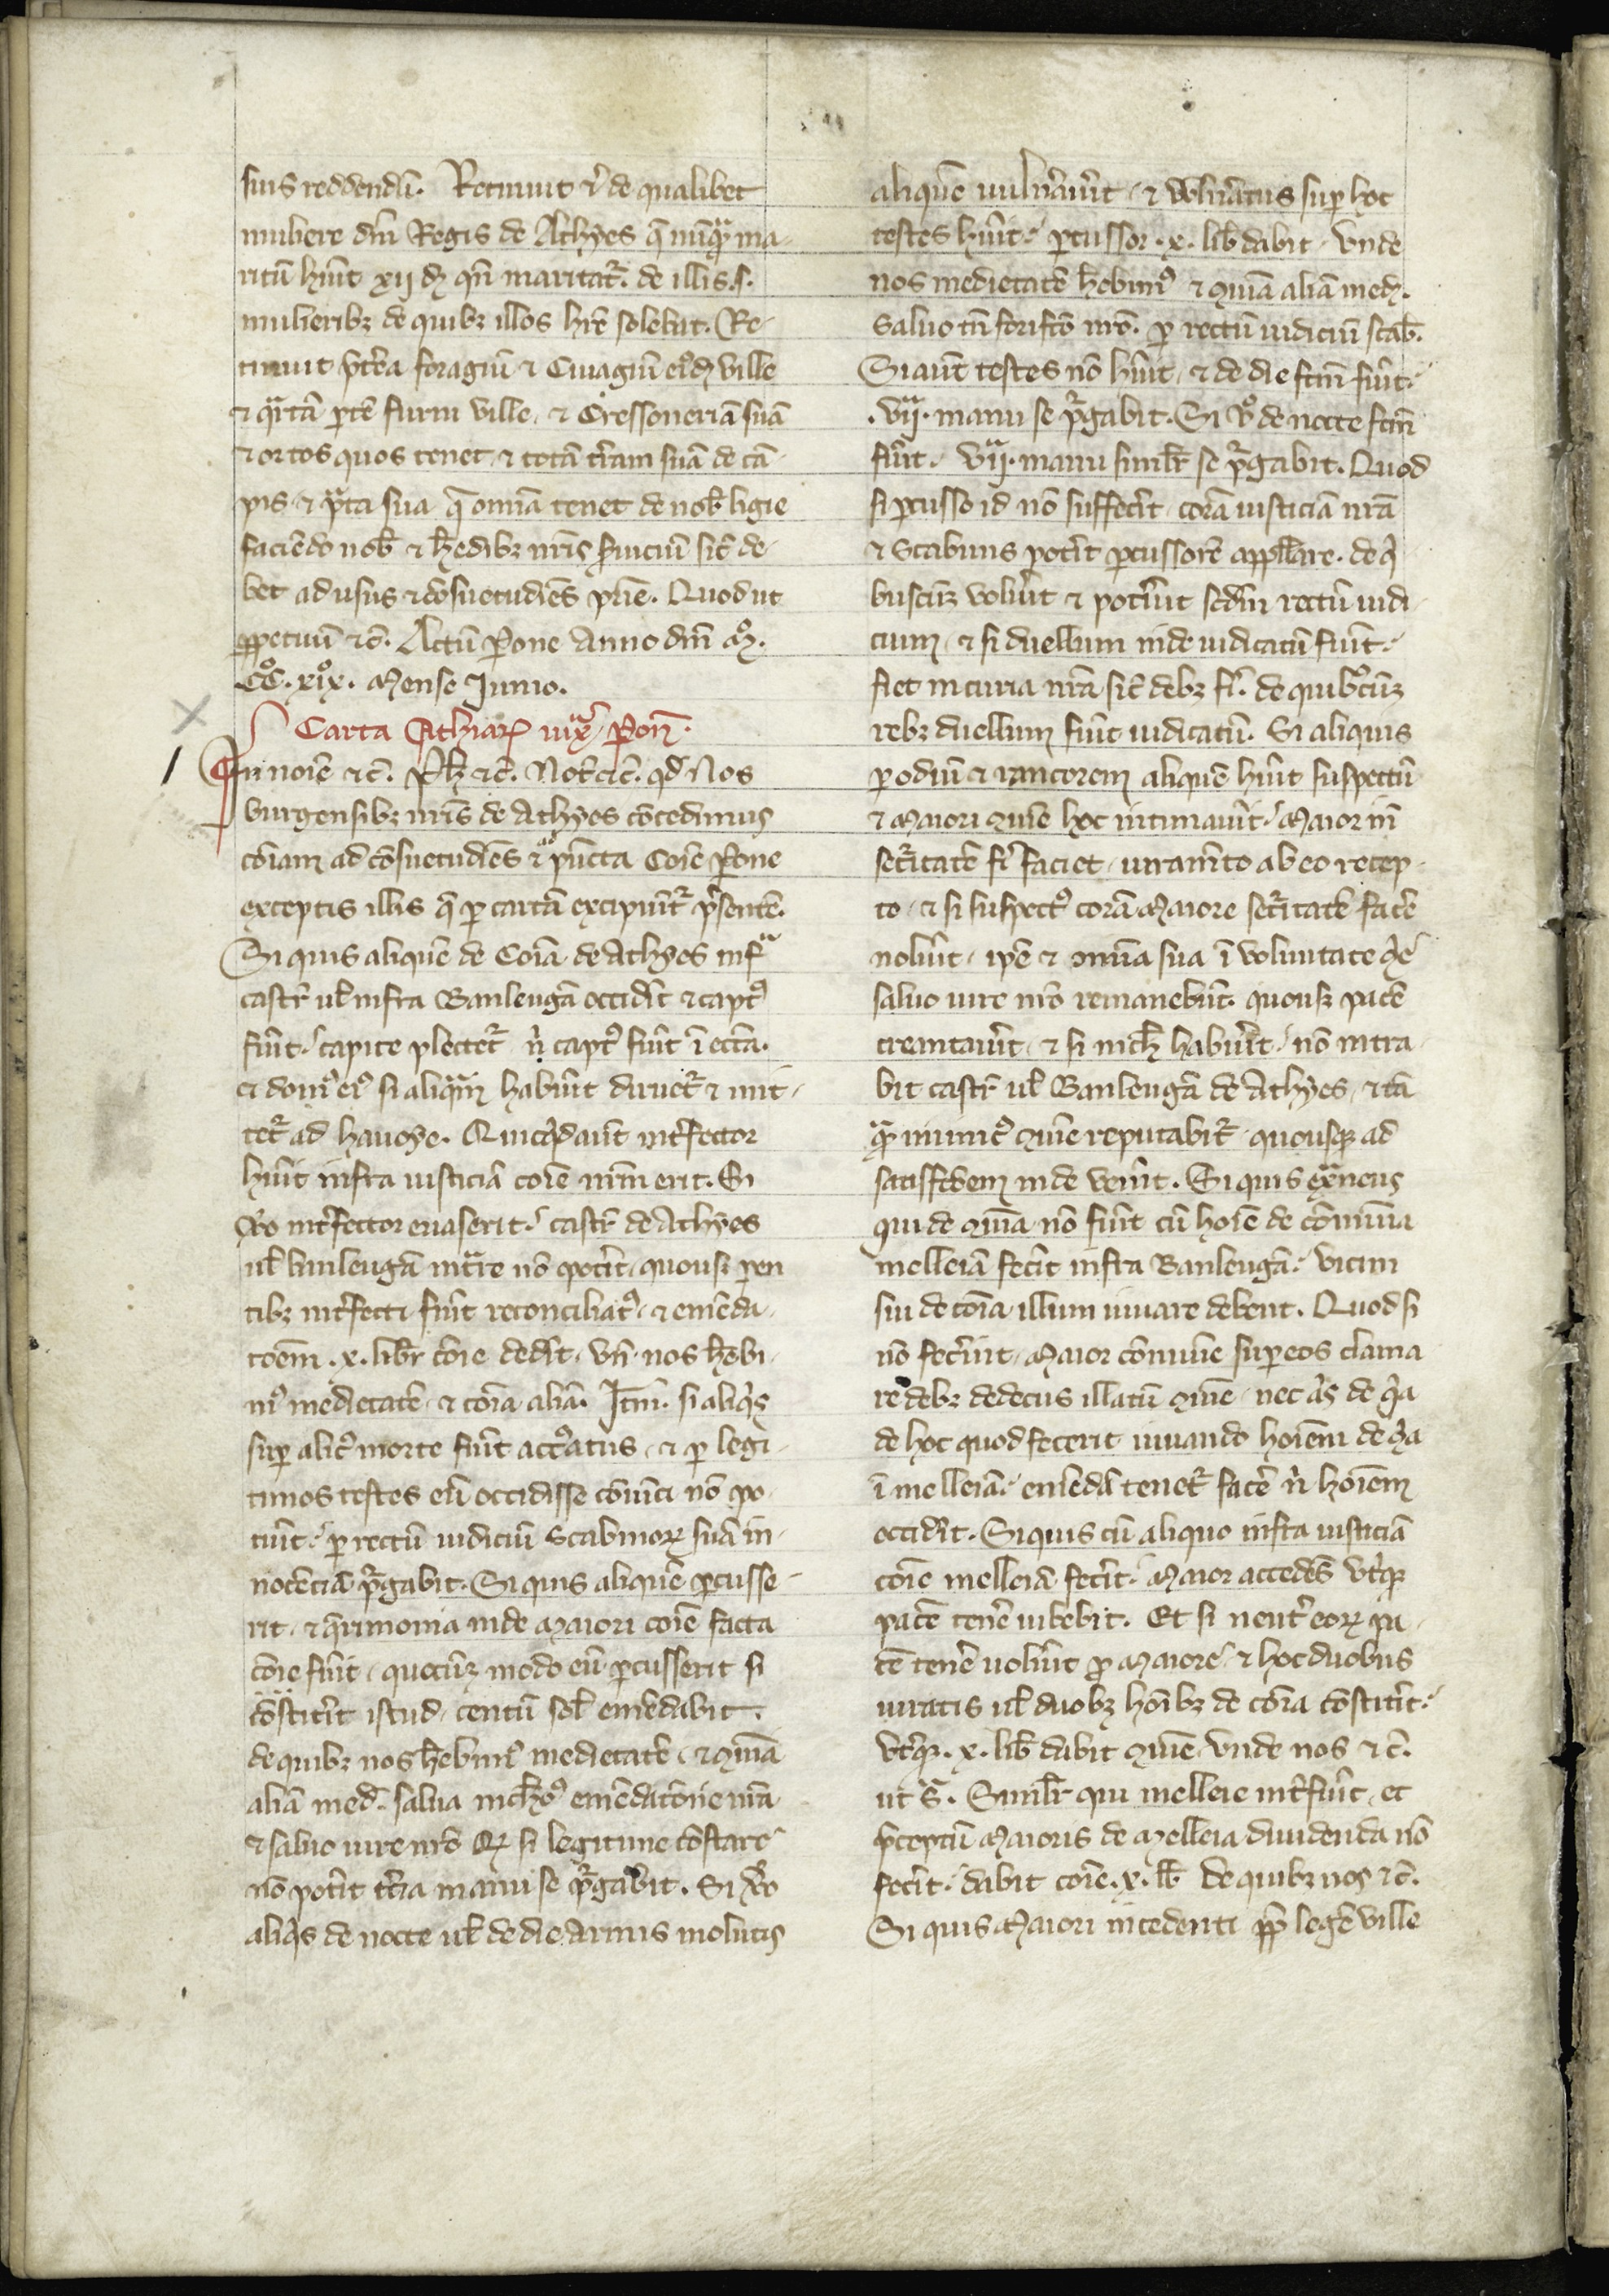 suis reddendū. Retinuit & de qualibet
muliere dn̄i Regis de Athyes q̄ nūq̄ ma-
ritū hūit xij d. qn̄ maritat~. de illis .s.
mulieribȝ de quibȝ illos hr̄e solebat. Re-
tinuit p̄t̄ea foragiū & Ciuagiū eiusdē ville
& q̄rtā ptē furni ville, & Cressoneriā suā
& ortos quos tenet, & totā t̄ram suā de cā-
pis, & p̄ta sua q̄ om̄ia tenet de nob̄ ligie
faciēdo nob̄ & h̄edibȝ nr̄is ſuiciū sic̄ de-
bet ad usus & cōsuetudīes pōne. Quod ut
ppetuū &c̄. Actū Pone Anno dn̄i M°.
CC°. xix°. Mense Junio.
Carta Athiarꝝ iux̄ Pon̄.
In noīe &c̄. Ph̄ &c̄. Not̄ &c̄. qd̄ Nos
burgensibȝ nr̄is de Athyes cōcedimus
cōiam ad cōsuetudīes & pūcta Cōie Pone
exceptis illis q̄ p cartā excipiūt~ p̄sentē.
Si quis aliquē de Cōia de Athyes inf̄
castr̄ ul̄ infra Banleugā occid̄it & capt9
fūit, capite plectet~, n̄ capt9 fūit ī eccīa.
& dom9 ei9 si aliquam habūit diruet~ & mit-
tet~ ad hanoye. Quicq̄d aūt int̄fector
hūit infra iusticiā cōie nr̄m erit. Si
v̄o int̄fector euaserit, castr̄ de Athyes
ul̄ banleugā int̄re nō pot̄it, quousȝ paren
tibȝ int̄fecti fūit reconciliat9, & emēda-
tōem .x. libr̄ cōie ded̄it, vn̄ nos h̄ebi-
m9 medietatē, & cōia aliā. Itm̄. si aliq̄s
sup alic9 morte fūit acc9atus, & p legi-
timos testes eū occidisse cōuīci nō po-
tūit, p rectū iudiciū Scabinorꝝ suā in-
nocēciā p̄gabit. Si quis aliquē pcusse-
rit, & q̄rimonia inde Maiori cōie facta
cōie fūit, quocūȝ modo eū pcusserit si
cōstit̄it istud, centū sol̄ emēdabit.
de quibȝ nos h̄ebim9 medietatē, & q̄m̄a
aliā med̄. salua nichō9 emēdacōne nr̄a
& saluo iure nr̄o Qꝝ si legitime cōstare
nō pot̄it t̄cia manu se p̄gabit. Si v̄o
aliq̄s de nocte ul̄ de die armis molutis
aliquē uuln̄auit, & vuln̄atus sup hoc
testes hūit, pcussor .x. lib̄ dabit, vnde
nos medietatē h̄ebim9 & q̄m̄a aliā med̄.
Saluo tn̄ forifcō nr̄o. p rectū iudiciū scab̄.
Si aūt testes nō hūit, & de die fcm̄ fūit,
.vij. manu se p̄gabit. Si v̄o de nocte fcm̄
fūit. vij. manu simil̄r se p̄gabit. Quod
si pcusso id nō suffec̄it, corā iusticiā nr̄ā
& Scabinis pot̄it pcussorē appll̄are. de q̄-
buscūȝ volūit & potūit scdm̄ rectū iudi-
cium, & si duellum inde iudicatū fūit,
fiet in curia nr̄a sic̄ debȝ fi~. de quibuscūȝ
rebȝ duellum fūit iudicatū. Si aliquis
p odiū & rancorem aliquē hūit suspectū
& Maiori q̄m̄e hoc intimau̅it, Maior in̄
sec̄ritatē fi~ faciet, iuram̄to ab eo recep-
to, & si suspect9 corā Maiore sec̄ritatē fac̄e
nolūit, ip̄e & om̄ia sua ī voluntate q̄e
saluo iure nr̄o remanebūt, quousȝ pacē
creantauit, & si nich̄ habūit, nō intra-
bit castr̄ ul̄ Banleugā de Athyes, & tā
q̄ inimic9 q̄m̄e reputabit~, quousqȝ ad
satisfcōem inde venīt. Si quis ext̄neus
qui de q̄m̄a nō fūit cū hoīe de cōmuīa
melleiā fec̄it infra Banleugā, vicini
sui de cōia illum iuuare debent. Quod si
nō fec̄int, Maior cōmuīe sup eos clama
re debȝ dedecus illatū q̄m̄e, nec q̄s de q̄a
de hoc quod fecerit iuuando hoīem de q̄a
ī melleiā, emēdā tenet~ fac̄e n̄ hoīem
occid̄it. Si quis cū aliquo infra iusticiā
cōie melleiā fec̄it, Maior accedēs vt̄qȝ
pacē ten̄e iubebit. Et si neut̄ eorꝝ pa-
cē ten̄e uolūit pro Maiore, & hoc duobus
iuratis ul̄ duobȝ hoībȝ de cōia cōstit̄it,
vt̄qȝ .x. lib̄ dabit q̄m̄e, vnde nos &c̄.
ut s̄. Simil̄r qui melleie int̄fūit, et
p̄ceptū Maioris de Melleia diuidenda nō
fec̄it, dabit cōie .x. ll̄. de quibȝ nos &c̄.
Si quis Maiori incedenti pp̄ legē ville